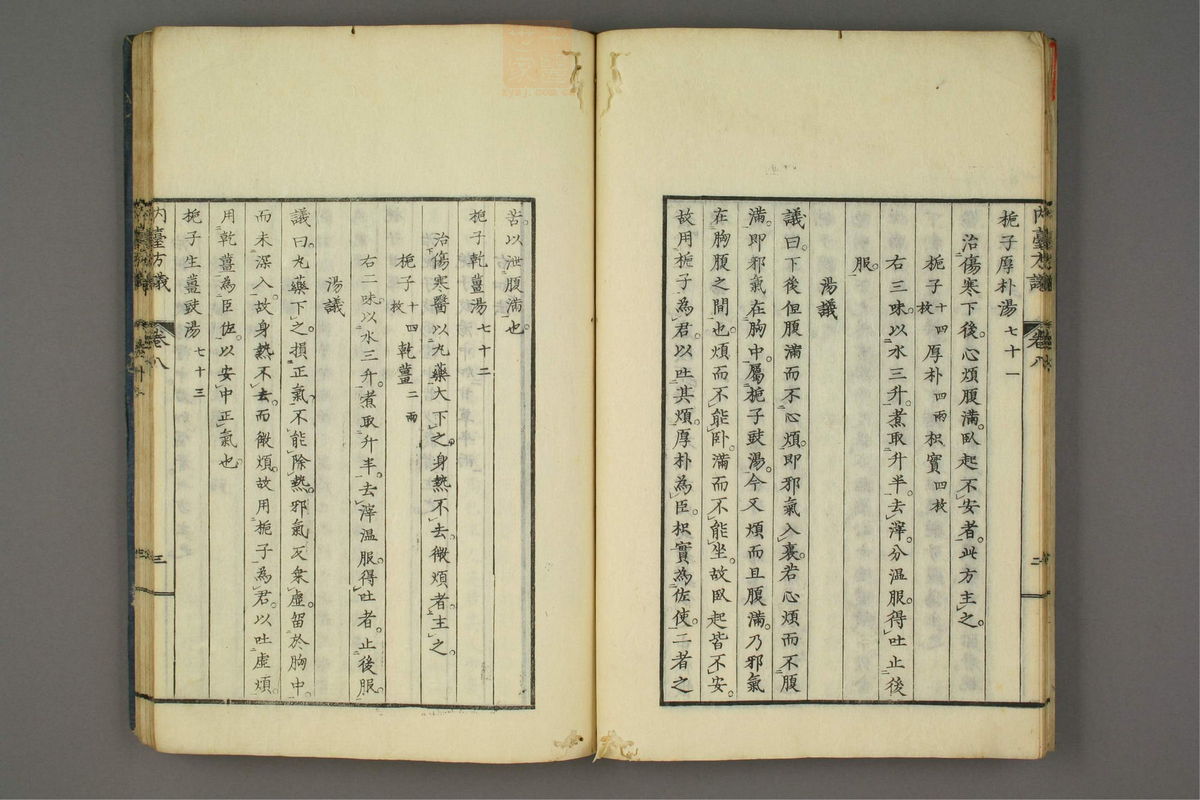 梔子厚朴湯七十一
治傷寒下後。心煩腹滿。臥起不安者。此方主之。
梔子十四枚厚朴四兩枳實四枚
右三味。以水三升。煮取升半。去滓。分温服。得吐止後
服。
湯議
議曰。下後但腹滿而不心煩。即邪氣入裏。若心煩而不腹
滿。即邪氣在胸中。屬梔子豉湯。今又煩而且腹滿。乃邪氣
在胸腹之間也。煩而不能卧。滿而不能坐。故臥起皆不安。
故用梔子為君。以吐其煩。厚朴為臣。枳實為佐使。二者之
苦。以泄腹滿也。
梔子乾薑湯七十二
治傷寒醫以丸藥大下之。身熱不去。微煩者。主之。
梔子十四枚乾薑二兩
右二味。以水三升。煮取升半。去滓温服。得吐者。止後服。
湯議
議曰。丸藥下之。損正氣。不能除熱。邪氣又乗虛留於胸中。
而未深入。故身熱不去。而微煩。故用梔子為君。以吐虛煩。
用乾薑為臣佐。以安中正氣也。
梔子生薑豉湯七十三
內臺方議
卷八
三